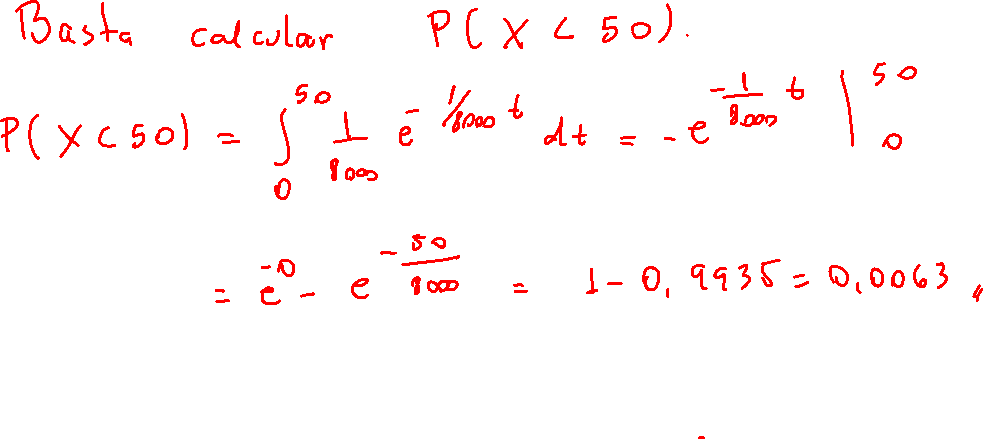 Basta calcular P( X < 50 ).
P( X < 50 ) = ∫₀⁵⁰ 1/8000 e^(-1/8000 t) dt = -e^(-1/8.000 t) |₀⁵⁰
= e^(-0) - e^(-50/8000) = 1 - 0,9935 = 0,0063 〃